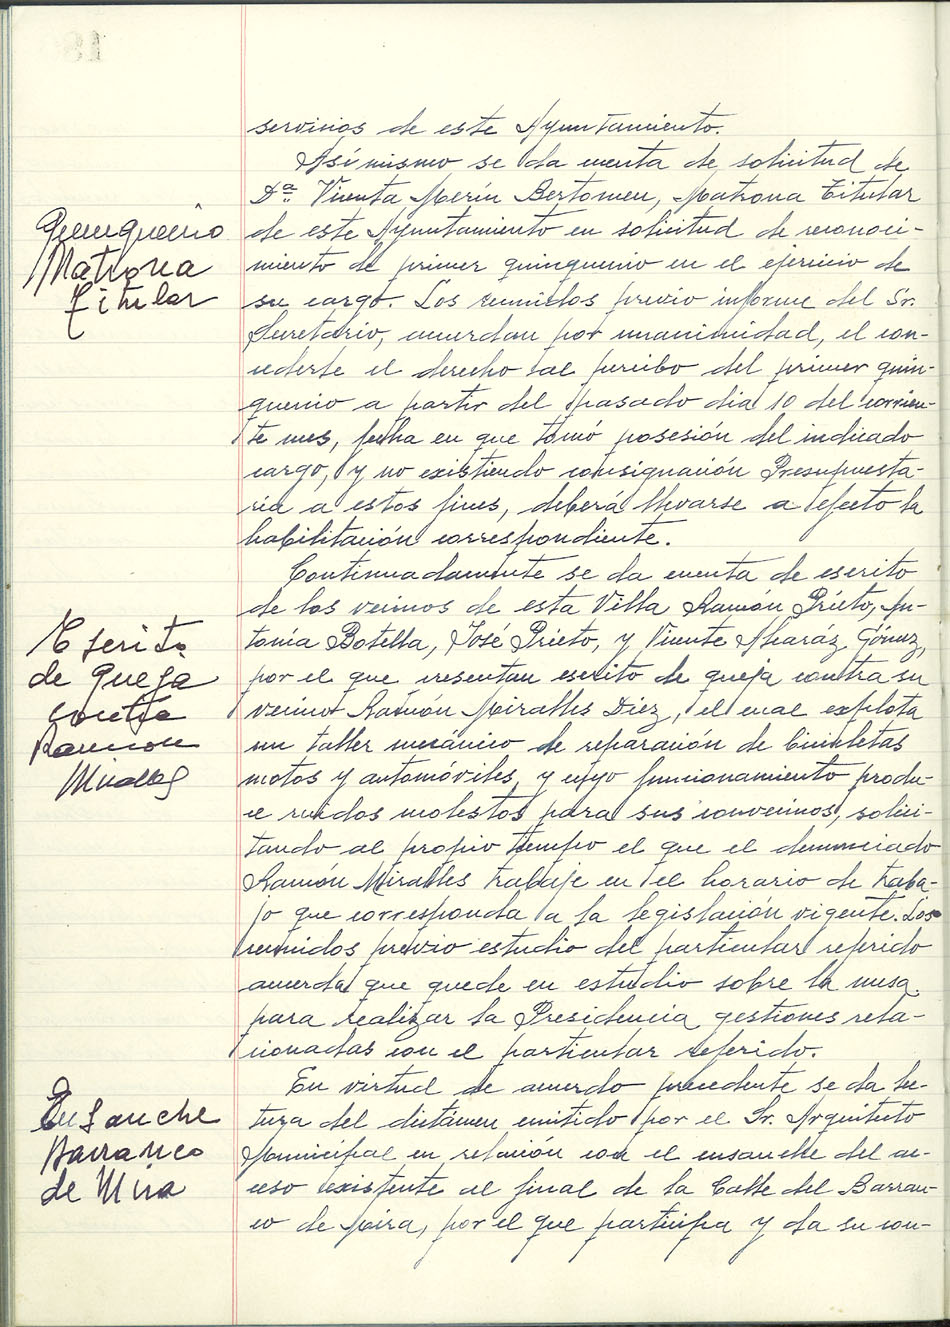 servicios de este Ayuntamiento.
Asímismo se da cuenta de solicitud de
Dª Vicenta Merín Bertomeu, Matrona Titular
de este Ayuntamiento en solicitud de reconoci-
miento de primer quinquenio en el ejercicio de
su cargo. Los reunidos previo informe del Sr.
Secretario, acuerdan por unanimidad, el con-
cederle el derecho al percibo del primer quin-
quenio a partir del pasado dia 10 del corrien-
te mes, fecha en que tomó posesión del indicado
cargo, y no existiendo consignación Presupuesta-
ria a estos fines, deberá llevarse a efecto la
habilitación correspondiente.
Quinquenio
Matrona
Titular
Continuadamente se da cuenta de escrito
de los vecinos de esta Villa Ramón Prieto, An-
tonia Botella, José Prieto, y Vicente Alcaráz Gómez,
por el que presentan escrito de queja contra su
vecino Ramón Miralles Diez, el cual explota
un taller mecánico de reparación de bicicletas
motos y automóviles, y cuyo funcionamiento produ-
ce ruidos molestos para sus convecinos, solici-
tando al propio tiempo el que el denunciado
Ramón Miralles trabaje en el horario de traba-
jo que corresponda a la legislación vigente. Los
reunidos previo estudio del particular referido
acuerda que quede en estudio sobre la mesa
para realizar la Presidencia gestiones rela-
cionadas con el particular referido.
Escrito
de queja
contra
Ramon
Miralles
En virtud de acuerdo precedente se da lec-
tura del dictámen emitido por el Sr. Arquitecto
Municipal en relación con el ensanche del ac-
ceso existente al final de la Calle del Barran-
co de Mira, por el que participa y da su con-
Ensanche
Barranco
de Mira